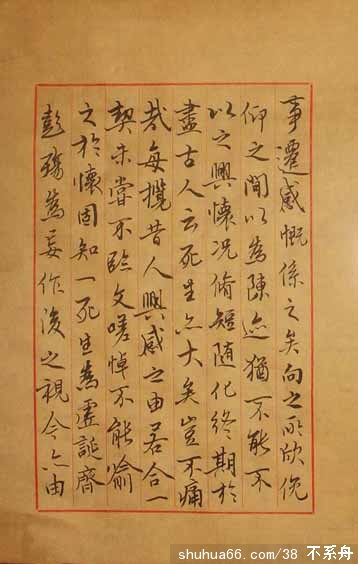 事遷感慨係之矣向之所欣俛
仰之間以為陳迹猶不能不
以之興懷況脩短隨化終期於
盡古人云死生亦大矣豈不痛
哉每攬昔人興感之由若合一
契未嘗不臨文嗟悼不能喻
之於懷固知一死生為虛誕齊
彭殤為妄作後之視今亦由
shuhua66.com/38 不系舟